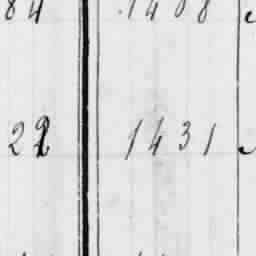 84 1408
22 1431